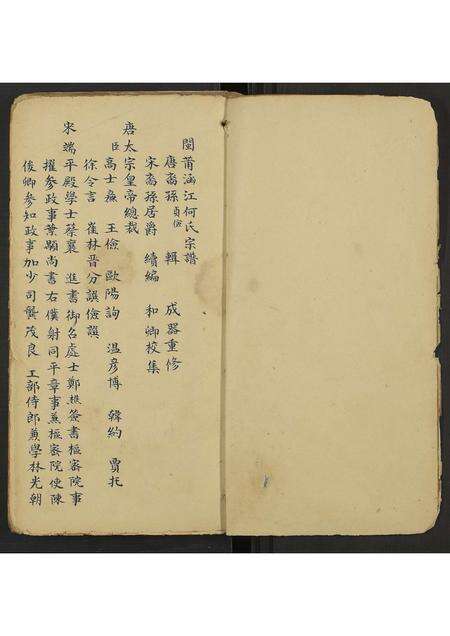 閩莆涵江何氏宗譜
唐裔孫貞儉 輯 成器重修
宋裔孫居爵 續編 和卿校集
唐太宗皇帝總裁
臣高士廉 王儉 歐陽詢 温彦博 韓約 賈托
徐令言 崔林晋分誤儉誤
宋端平殿學士蔡襄 進書御名處士鄭樵簽書樞密院事
擢參政事葉顒尚書右僕射同平章事兼樞密院使陳
俊卿參知政事加少司龔茂良 工部侍郎兼學林光朝